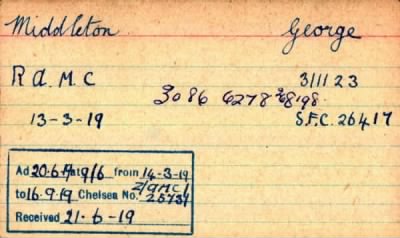 Middleton George
R.A.M.C 311123
3086 6278 26198
13-3-19 S.F.C. 26417
Ad 20.6.19 at 9/6 from 14-3-19
to 16.9.19 Chelsea No. 2/AMC/ 25737
Received 21-6-19